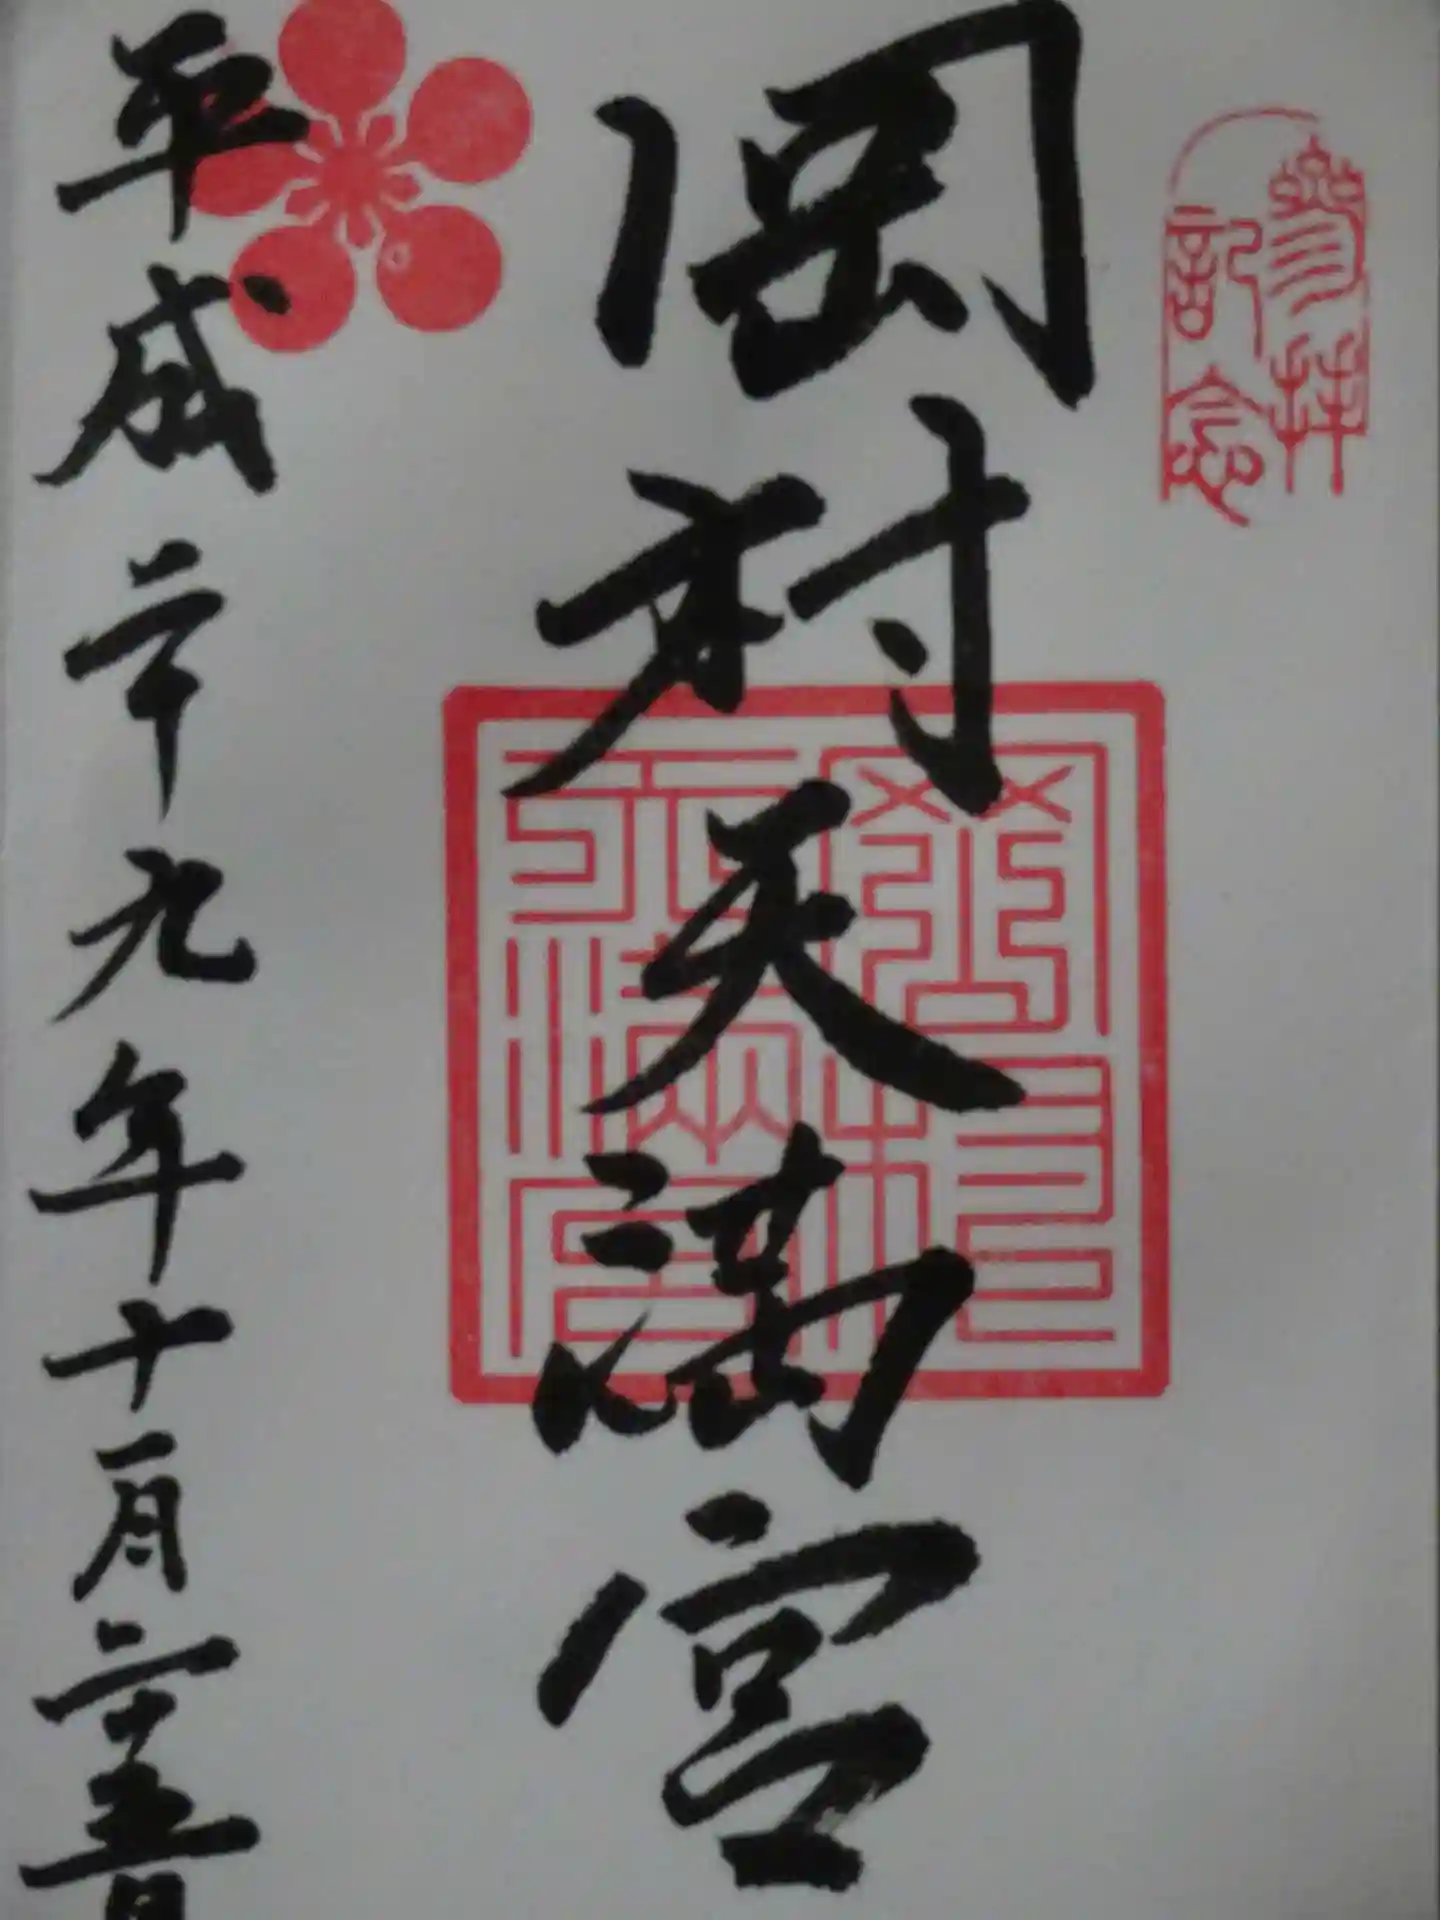 参拝
記念
岡村天満宮
岡村
天満宮
平成二十九年十一月二十五日